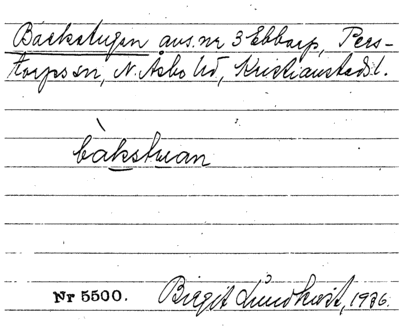 Backstugan åvs. nr 3 Ebbarp, Pers-
torps sn, N. Åsbo hd, Kristianstads l.
bàkstuan
Nr 5500. Birgit Lundkvist, 1936.